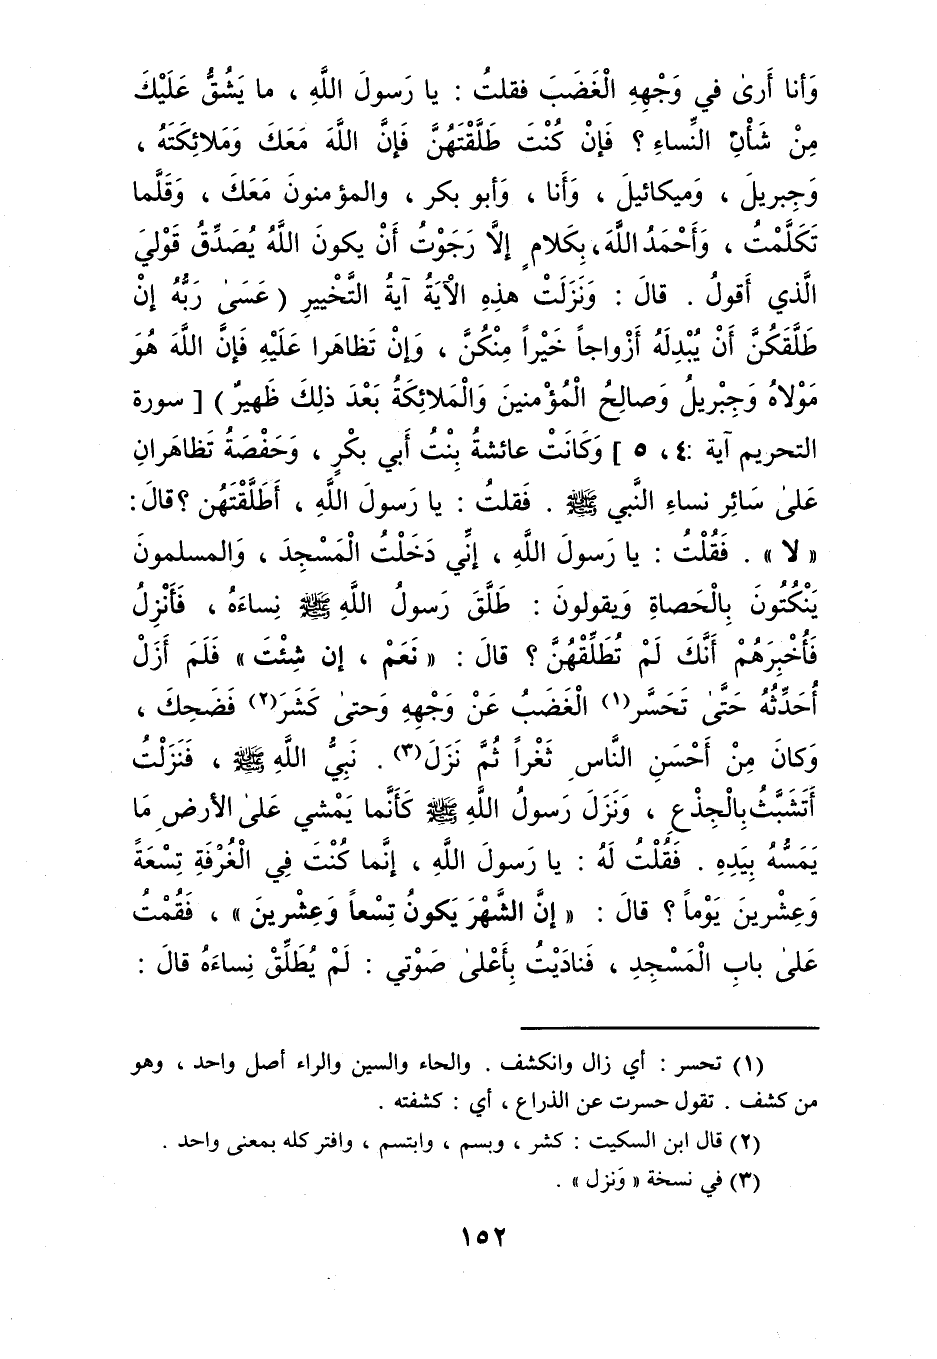 وَأنا أَرىٰ في وَجْهِهِ الْغَضَبَ فقلتُ : يا رَسولَ اللَّهِ ، ما يَشُقُّ عَلَيْكَ
مِنْ شَأْنِ النِّساءِ ؟ فَإنْ كُنْتَ طَلَّقْتَهُنَّ فَإنَّ اللَّهَ مَعَكَ وَمَلائِكَتَهُ ،
وَجِبريلَ ، وَميكائيلَ ، وَأَنا ، وَأبو بكر ، والمؤمنونَ مَعَكَ ، وَقَلَّما
تَكَلَّمْتُ ، وَأَحْمَدُ اللَّهَ، بِكَلامٍ إلَّا رَجَوْتُ أَنْ يكونَ اللَّهُ يُصَدِّقُ قَوْليَ
الَّذي أَقولُ . قالَ : وَنَزَلَتْ هذِهِ الآيَةُ آيةُ التَّخْييرِ ( عَسَىٰ رَبُّهُ إنْ
طَلَّقَكُنَّ أَنْ يُبْدِلَهُ أَزْواجاً خَيْراً مِنْكُنَّ ، وَإنْ تَظاهَرا عَلَيْهِ فَإنَّ اللَّهَ هُوَ
مَوْلاهُ وَجِبْريلُ وَصالِحُ الْمُؤْمنينَ وَالْمَلائِكَةُ بَعْدَ ذلِكَ ظَهيرٌ ) [ سورة
التحريم آية :٤ ، ٥ ] وَكَانَتْ عائشةُ بِنْتُ أَبي بكْرٍ ، وَحَفْصَةُ تَظاهَرانِ
عَلىٰ سَائِر نساءِ النَّبي ﷺ . فَقلتُ : يا رَسولَ اللَّهِ ، أَطَلَّقْتَهُن ؟ قالَ :
« لا » . فَقُلْتُ : يا رسولَ اللَّهِ ، إنِّي دَخَلْتُ الْمَسْجِدَ ، وَالمسلمونَ
يَنْكُتُونَ بِالْحَصاةِ وَيقولونَ : طَلَّقَ رَسولُ اللَّهِ ﷺ نِساءَهُ ، فَأَنْزِلُ
فَأُخْبِرَهُمْ أَنَّكَ لَمْ تُطَلِّقْهُنَّ ؟ قالَ : « نَعَمْ ، إن شِئْتَ » فَلَمَ أَزَلْ
أُحَدِّثُهُ حَتَّىٰ تَحَسَّر(١) الْغَضَبُ عَنْ وَجْهِهِ وَحتىٰ كَشَرَ(٢) فَضَحِكَ ،
وَكانَ مِنْ أَحْسَنِ النَّاسِ ثَغْراً ثُمَّ نَزَلَ(٣) . نَبِيُّ اللَّهِ ﷺ ، فَنَزَلْتُ
أَتَشَبَّثُ بِالْجِذْعِ ، وَنَزَلَ رَسولُ اللَّهِ ﷺ كَأَنَّما يَمْشي عَلىٰ الأرضِ مَا
يَمَسُّهُ بِيَدِهِ . فَقُلْتُ لَهُ : يا رَسولَ اللَّهِ ، إنَّما كُنْتَ فِي الْغُرْفَةِ تِسْعَةً
وَعِشْرينَ يَوْماً ؟ قالَ : « إنَّ الشَّهْرَ يَكونُ تِسْعاً وَعِشْرينَ » ، فَقُمْتُ
عَلىٰ بابِ الْمَسْجِدِ ، فَنادَيْتُ بِأَعْلىٰ صَوْتي : لَمْ يُطَلِّقْ نِساءَهُ قالَ :
(١) تحسر : أي زال وانكشف . والحاء والسين والراء أصل واحد ، وهو
من كشف . تقول حسرت عن الذراع ، أي : كشفته .
(٢) قال ابن السكيت : كشر ، وبسم ، وابتسم ، وافتر كله بمعنى واحد .
(٣) في نسخة « وَنزل » .
١٥٢